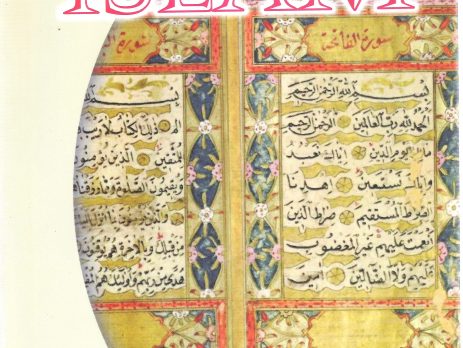 سورة الفاتحة
بسم الله الرحمن الرحيم
الحمد لله رب العالمين الرحمن الرحيم
مالك يوم الدين اياك نعبد
واياك نستعين اهدنا
الصراط المستقيم صراط الذين
انعمت عليهم غير المغضوب
عليهم ولا الضالين امين
سورة
بسم
ذلك الكتاب لا
الذين
ويقيمون الصلوة ومما
والذين يؤمنون بما انزل
من قبلك وبالاخرة هم
هدى من ربهم واولئك هم